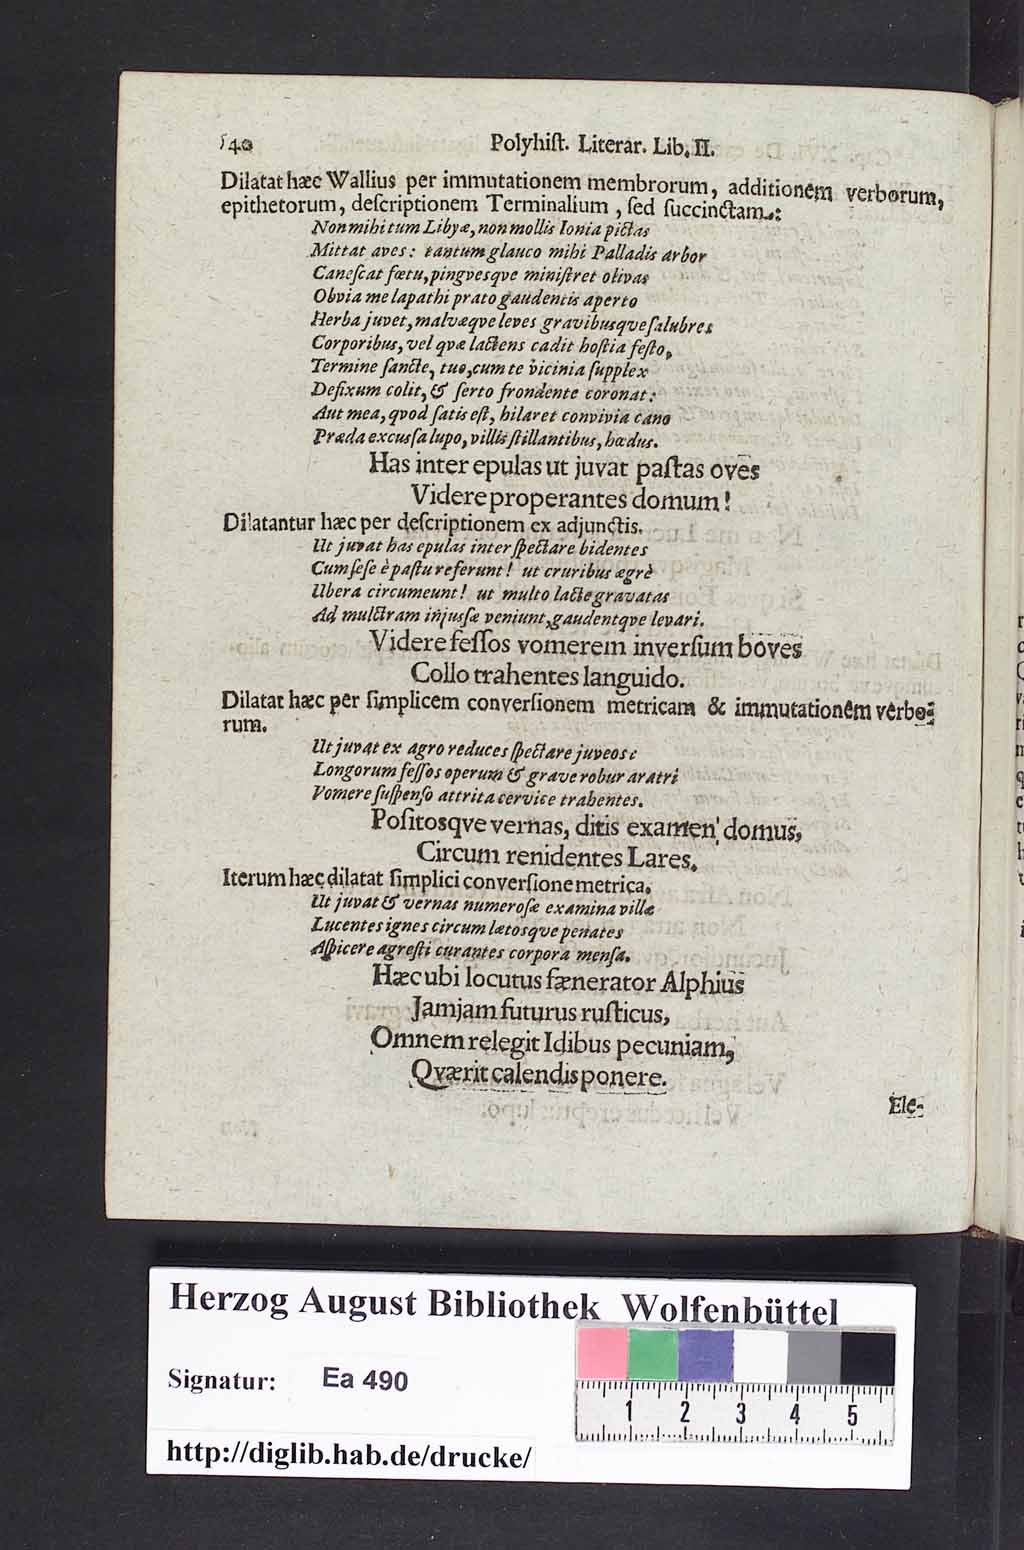 540 Polyhiſt. Literar. Lib. II.
Dilatat hæc Wallius per immutationem membrorum, additionem verborum,
epithetorum, deſcriptionem Terminalium, ſed ſuccinctam.:
Non mihi tum Libyæ, non mollis Ionia pictas
Mittat aves: tantum glauco mihi Palladis arbor
Caneſcat fœtu, pingvesqve miniſtret olivas
Obvia me lapathi prato gaudentis aperto
Herba juvet, malvæqve leves gravibusqve ſalubres
Corporibus, vel qvæ lactens cadit hoſtia feſto,
Termine ſancte, tuo, cum te vicinia ſupplex
Defixum colit, & ſerto frondente coronat:
Aut mea, qvod ſatis eſt, hilaret convivia cano
Præda excuſſa lupo, villis ſtillantibus, hœdus.
Has inter epulas ut juvat paſtas oves
Videre properantes domum!
Dilatantur hæc per deſcriptionem ex adjunctis.
Ut juvat has epulas inter ſpectare bidentes
Cum ſeſe è paſtu referunt! ut cruribus ægrè
Ubera circumeunt! ut multo lacte gravatas
Ad mulctram injuſſæ veniunt, gaudentqve levari.
Videre feſſos vomerem inverſum boves
Collo trahentes languido.
Dilatat hæc per ſimplicem converſionem metricam & immutationem verbo-
rum.
Ut juvat ex agro reduces ſpectare juveos c
Longorum feſſos operum & grave robur aratri
Vomere ſuſpenſo attrita cervice trahentes.
Poſitosqve vernas, ditis examen domus,
Circum renidentes Lares.
Iterum hæc dilatat ſimplici converſione metrica.
Ut juvat & vernas numeroſæ examina villæ
Lucentes ignes circum lætosqve penates
Aſpicere agreſti curantes corpora menſa.
Hæc ubi locutus fænerator Alphius
Jamjam futurus ruſticus,
Omnem relegit Idibus pecuniam,
Qværit calendis ponere.
Ele-
Herzog August Bibliothek Wolfenbüttel
Signatur: Ea 490
1 2 3 4 5
http://diglib.hab.de/drucke/